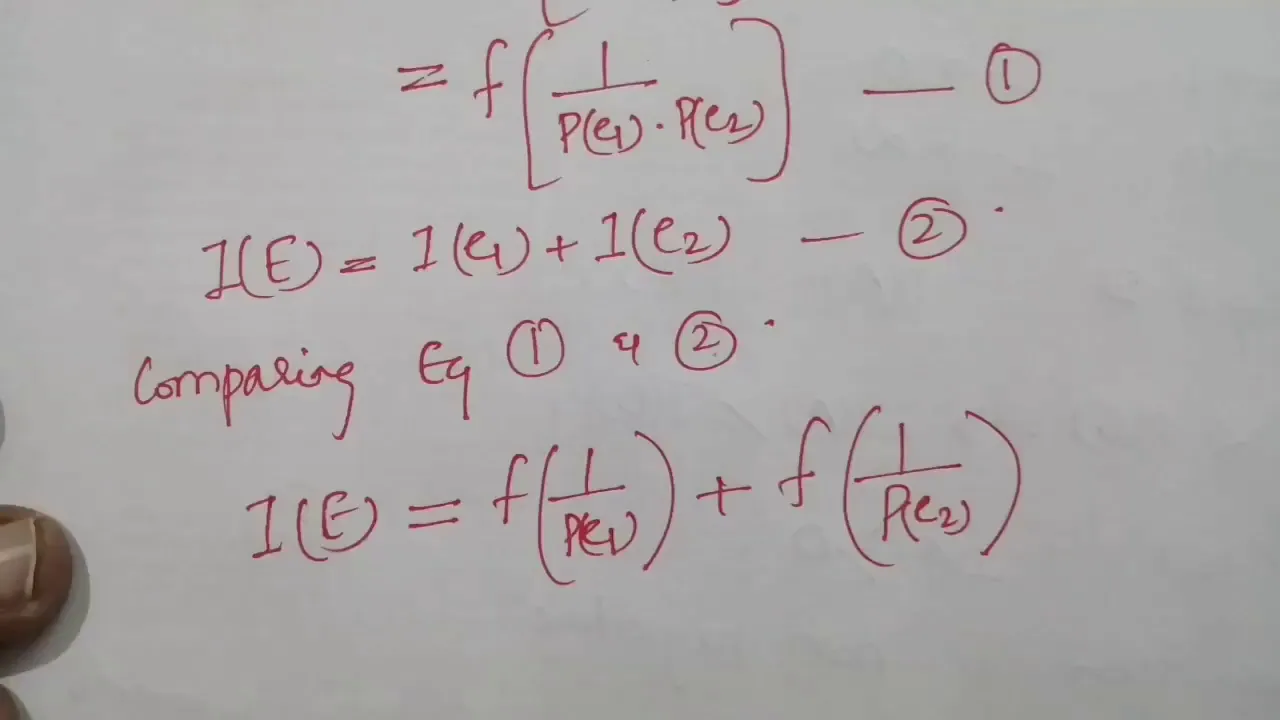 = f[1/(P(e1) · P(e2))] — ①
I(E) = I(e1) + I(e2) — ②
Comparing Eq ① & ②
I(E) = f(1/P(e1)) + f(1/P(e2))